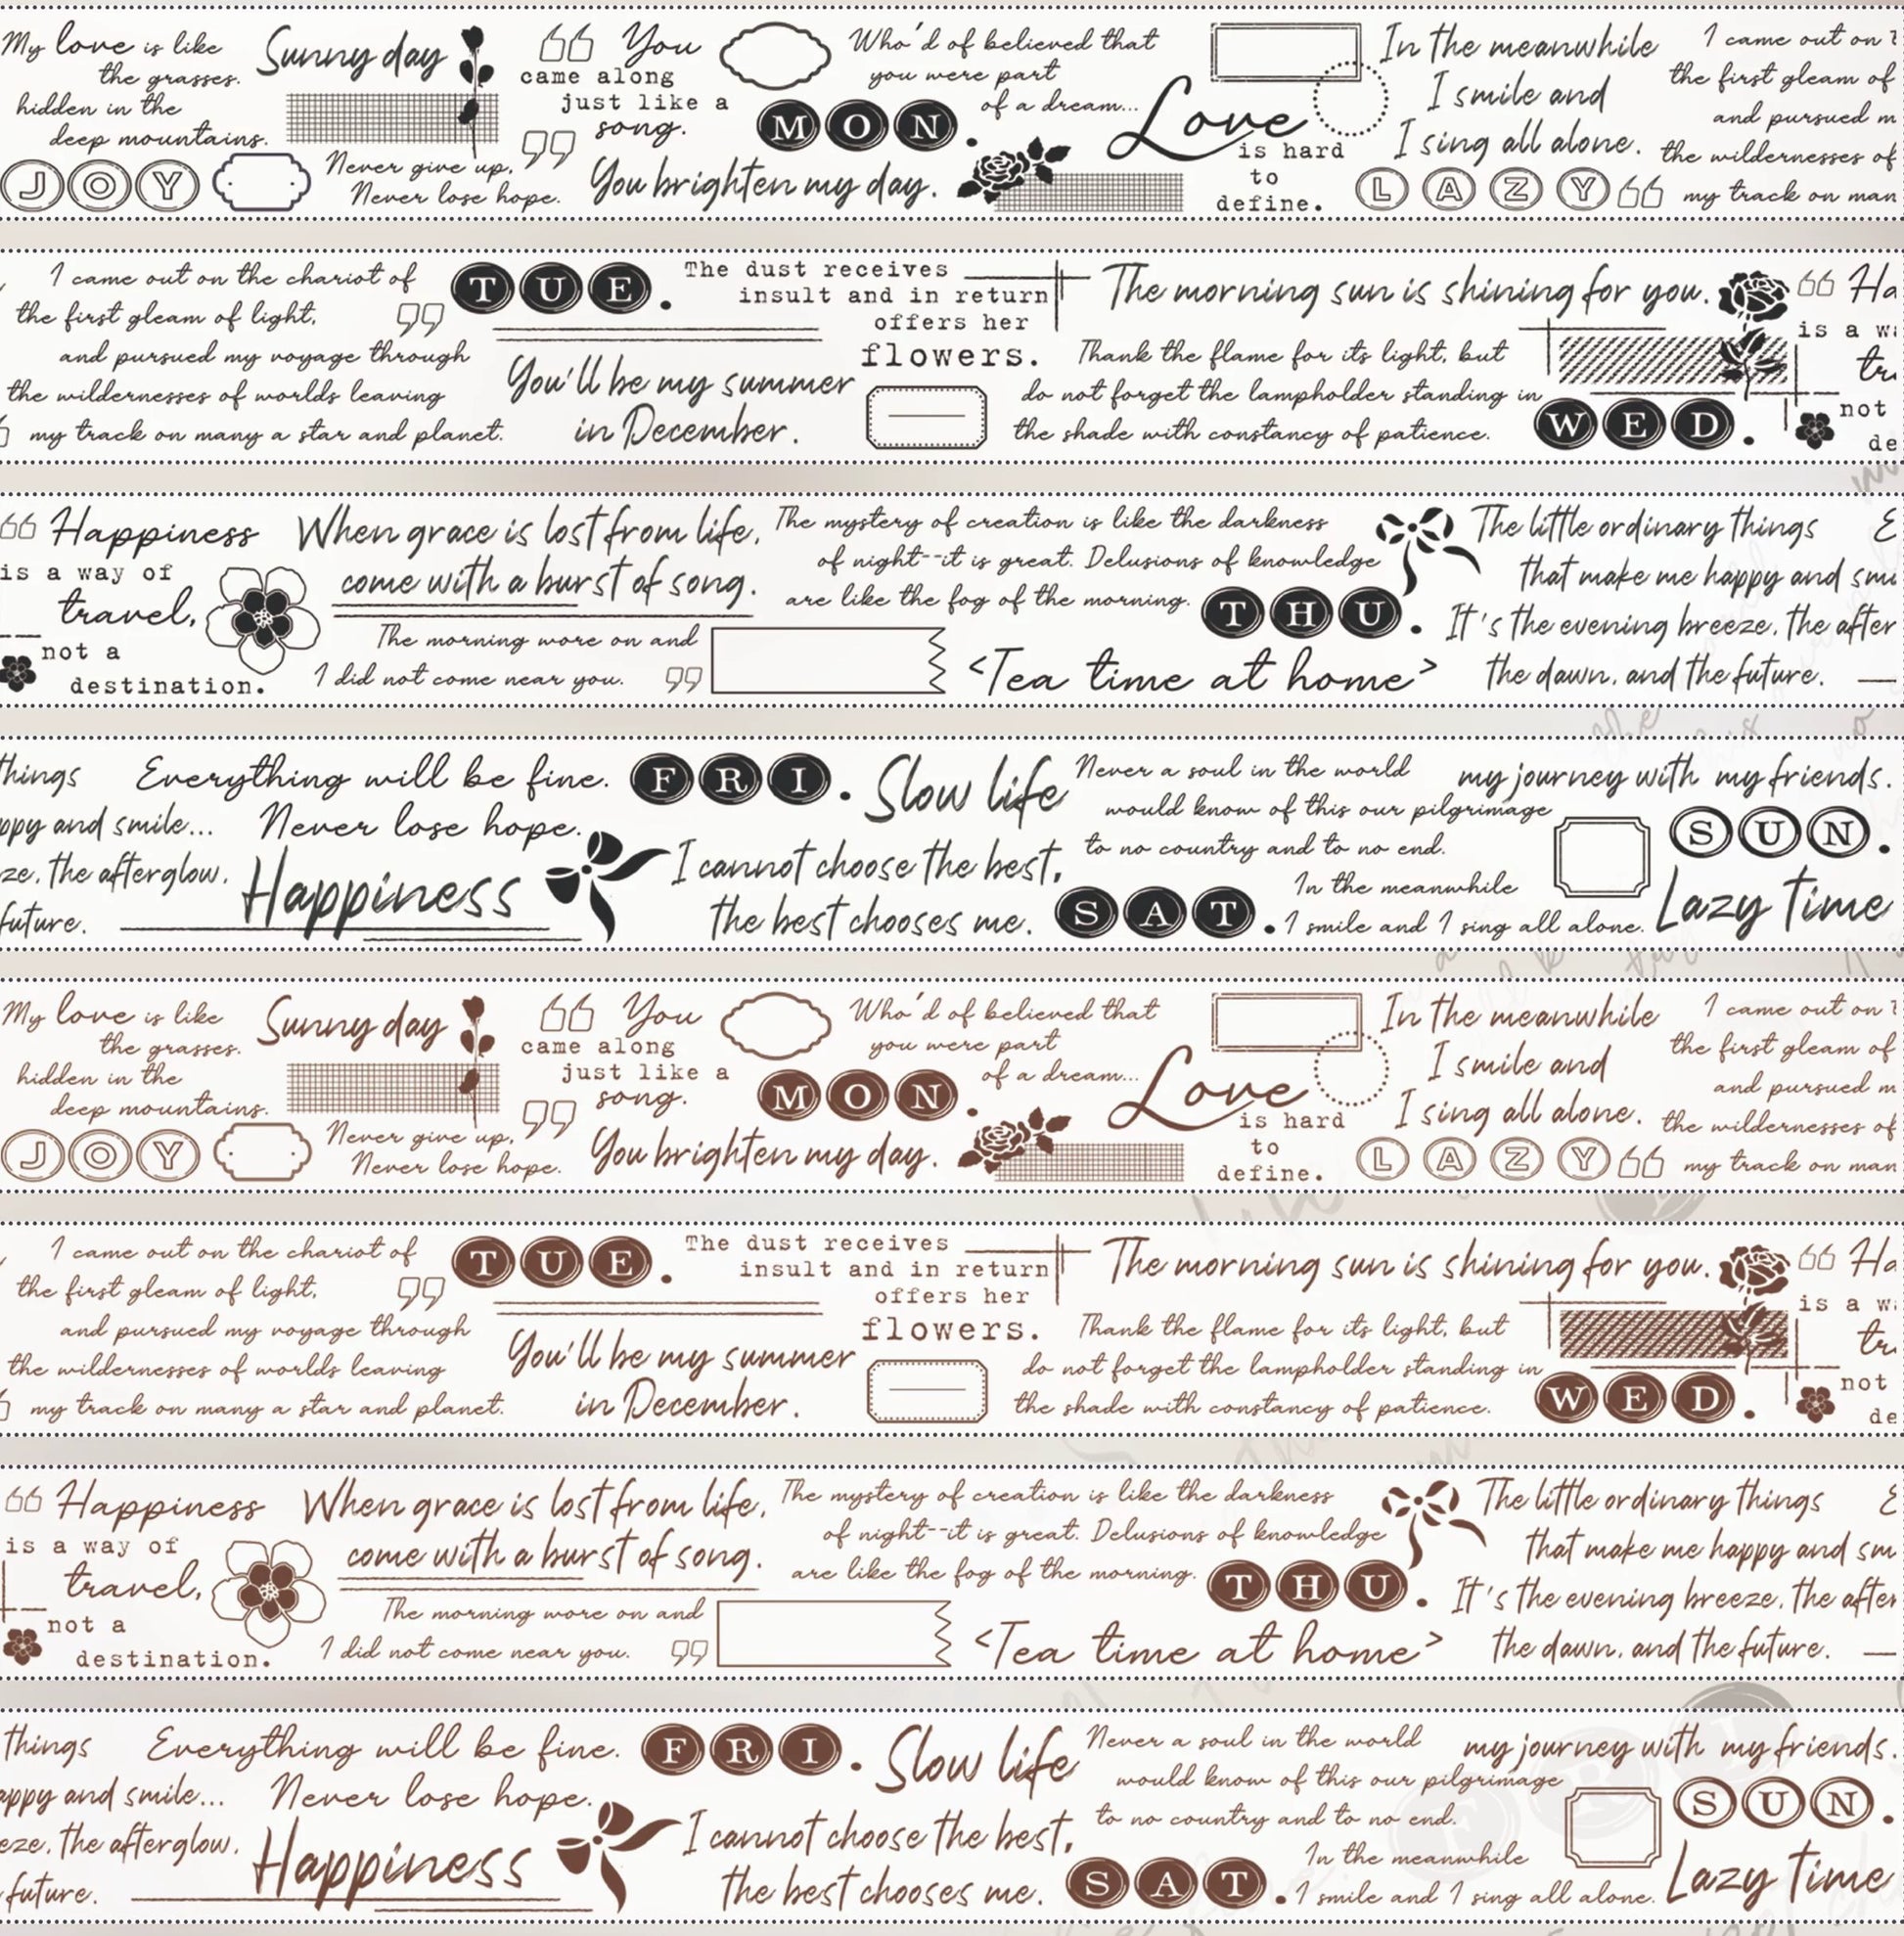 My love is like
the grasses.
hidden in the
deep mountains.
JOY
Sunny day
Never give up,
Never lose hope.
“ You
came along
just like a
song. ”
MON.
You brighten my day.
Who'd of believed that
you were part
of a dream...
Love
is hard
to
define.
In the meanwhile
I smile and
I sing all alone.
LAZY
I came out on
the first gleam of
and pursued m
the wildernesses of
“ my track on man
I came out on the chariot of
the first gleam of light,
and pursued my voyage through
the wildernesses of worlds leaving
my track on many a star and planet.
”
TUE.
You'll be my summer
in December.
The dust receives
insult and in return
offers her
flowers.
The morning sun is shining for you.
Thank the flame for its light, but
do not forget the lampholder standing in
the shade with constancy of patience.
WED.
“ Ha
is a w
tr
not
de
“ Happiness
is a way of
travel,
not a
destination.
When grace is lost from life,
come with a burst of song.
The morning wore on and
I did not come near you. ”
The mystery of creation is like the darkness
of night--it is great. Delusions of knowledge
are like the fog of the morning.
THU.
<Tea time at home>
The little ordinary things
that make me happy and smi
It's the evening breeze, the after
the dawn, and the future.
E
things
ppy and smile...
ze, the afterglow,
future.
Everything will be fine.
Never lose hope.
Happiness
FRI.
Slow life
I cannot choose the best,
the best chooses me.
SAT.
Never a soul in the world
would know of this our pilgrimage
to no country and to no end.
In the meanwhile
I smile and I sing all alone.
my journey with my friends.
SUN.
Lazy time
My love is like
the grasses.
hidden in the
deep mountains.
JOY
Sunny day
Never give up,
Never lose hope.
“ You
came along
just like a
song. ”
MON.
You brighten my day.
Who'd of believed that
you were part
of a dream...
Love
is hard
to
define.
In the meanwhile
I smile and
I sing all alone.
LAZY
I came out on
the first gleam of
and pursued m
the wildernesses of
“ my track on man
I came out on the chariot of
the first gleam of light,
and pursued my voyage through
the wildernesses of worlds leaving
my track on many a star and planet.
”
TUE.
You'll be my summer
in December.
The dust receives
insult and in return
offers her
flowers.
The morning sun is shining for you.
Thank the flame for its light, but
do not forget the lampholder standing in
the shade with constancy of patience.
WED.
“ Ha
is a w
tr
not
de
“ Happiness
is a way of
travel,
not a
destination.
When grace is lost from life,
come with a burst of song.
The morning wore on and
I did not come near you. ”
The mystery of creation is like the darkness
of night--it is great. Delusions of knowledge
are like the fog of the morning.
THU.
<Tea time at home>
The little ordinary things
that make me happy and sm
It's the evening breeze, the after
the dawn, and the future.
things
appy and smile...
eze, the afterglow,
future.
Everything will be fine.
Never lose hope.
Happiness
FRI.
Slow life
I cannot choose the best,
the best chooses me.
SAT.
Never a soul in the world
would know of this our pilgrimage
to no country and to no end.
In the meanwhile
I smile and I sing all alone.
my journey with my friends.
SUN.
Lazy time